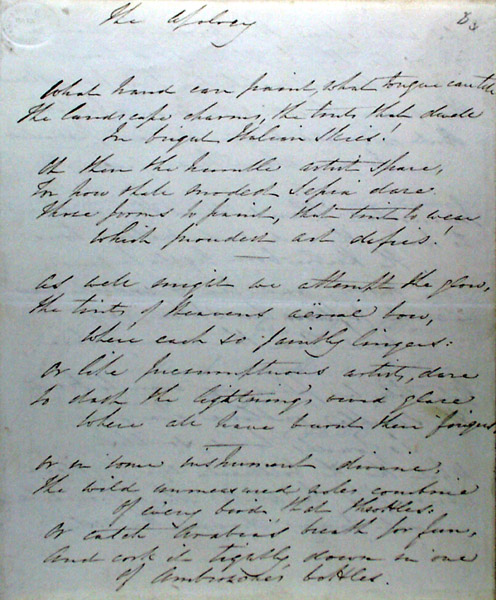 The Apology
83
What hand can paint, what tongue can tell
The landscape charms, the tints that dwell
In bright Italian skies!
Oh then the humble artist spare,
For how shall modest Sepia dare
Those forms to paint, that tint to wear
Which proudest art defies!
As well might we attempt the glow,
The tints of Heavens aërial bow,
Where each so faintly lingers:
Or like presumptuous artists, dare
to dash the lightning's vivid glare
Where all have burnt their fingers,
Or in some instrument divine,
The wild unmeasured notes combine
Of every bird that throttles.
Or catch Arabia's breath for fun,
And cork it tightly down in one
Of Ambrosche's bottles.